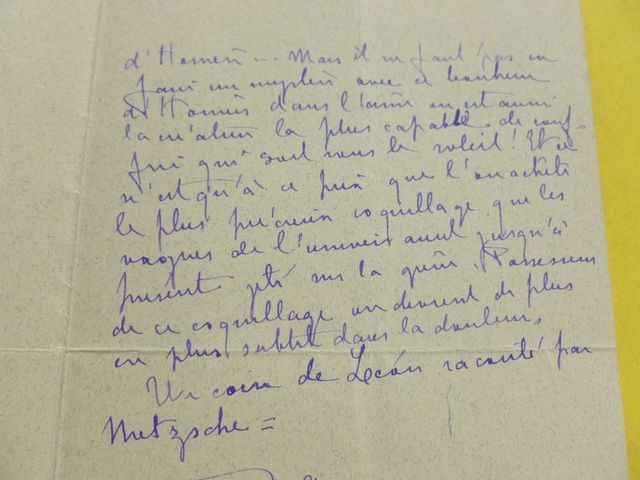 d'Homère ... Mais il ne faut pas en
faire un mystère avec ce bonheur
d'Homère dans l'âme on est aussi
la créature la plus capable de souf-
frir qui soit sous le soleil! Et ce
n'est qu'à ce prix que l'on achète
le plus précieux coquillage que les
vagues de l'univers aient jusqu'à
présent jeté sur la grève. Possesseur
de ce coquillage on devient de plus
en plus subtil dans la douleur.
Un coin de raconté par
Nietzsche =